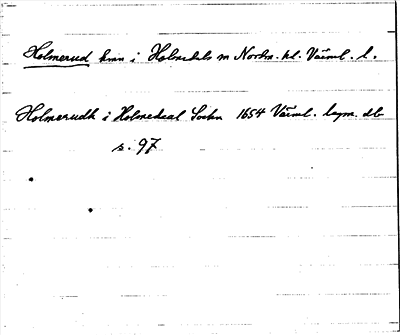 Holmerud hmn i Holmedals sn Nordm. hd. Värml. l.
Holmerudh i Holmedaal Sochn 1654 Värml. lagm. db
s. 97